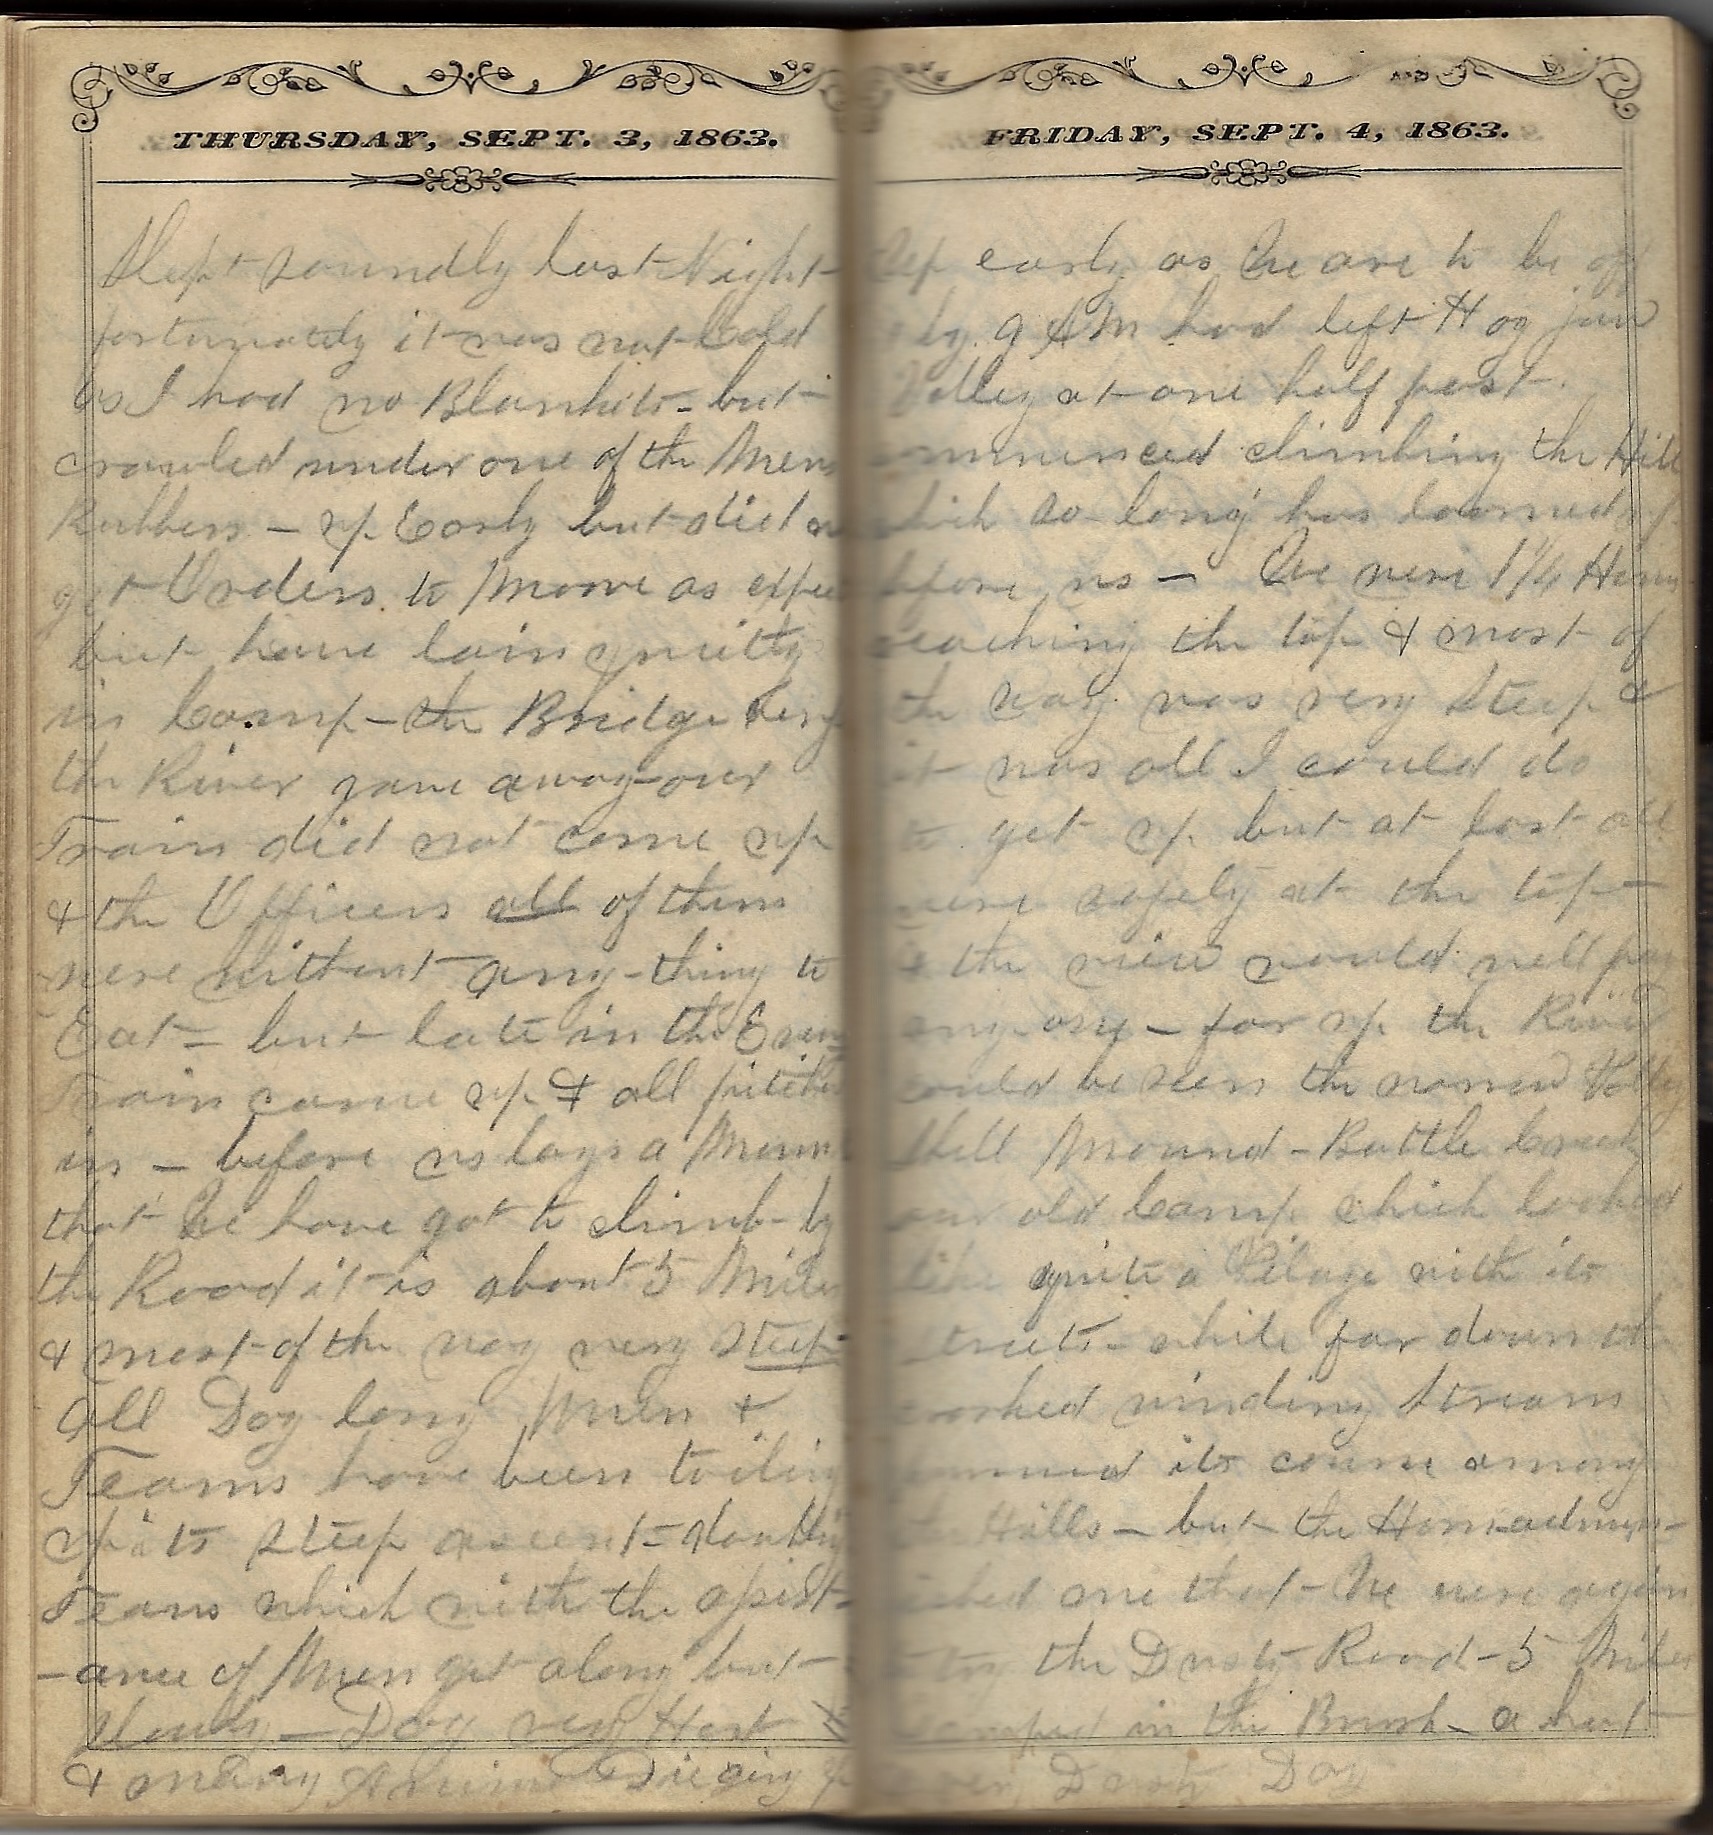 THURSDAY, SEPT. 3, 1863.
Slept soundly last Night
fortunately it was not Cold
as I had no Blankets - but
crawled under one of the Mens
Rubbers - up Early but did
get Orders to Moove as
but have lain quietly
in Camp - the Bridge
the River gave away - our
Train did not come up
& the Officers all of them
were without any-thing to
Eat - but late in the
Train came up & all
in - before us lays a
that We have got to climb - by
the Road it is about 5 Miles
& most of the way very Steep
All Day long Men &
Teams have been
up its steep ascent -
Teams which with the assist-
-ance of Men get along but
Slowly - Day very Hot
& many
FRIDAY, SEPT. 4, 1863.
Up early as We are to be off
by 9 AM had left Hog jaw
Valley at one half past
climbing the Hill
which so long has loomed up
before us - We were 1 1/4 Hours
reaching the top & most of
the way was very Steep &
it was all I could do
to get up but at last all
were safely at the top -
& the view would well pay
any one - for up the River
could be seen the narrow Vally
Shell Mound - Battle Creek
our old Camp which looked
like quite a Vilage with its
streets - while far down the
crooked winding Stream
its course among
the Hills - but the Horn admon-
ished me that We were again
the Dusty Road - 5 Miles
Camped in the Brush - a hot
Dusty Day